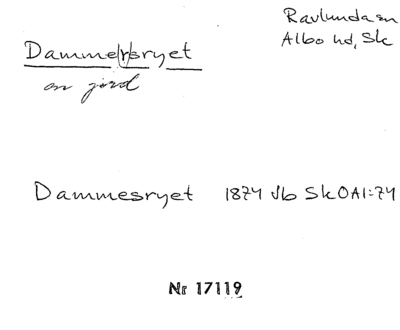 Ravlunda sn
Albo hd, Sk
Damme(r)sryet
an jord
Dammesryet 1874 Jb SkOAI:74
Nr 17119